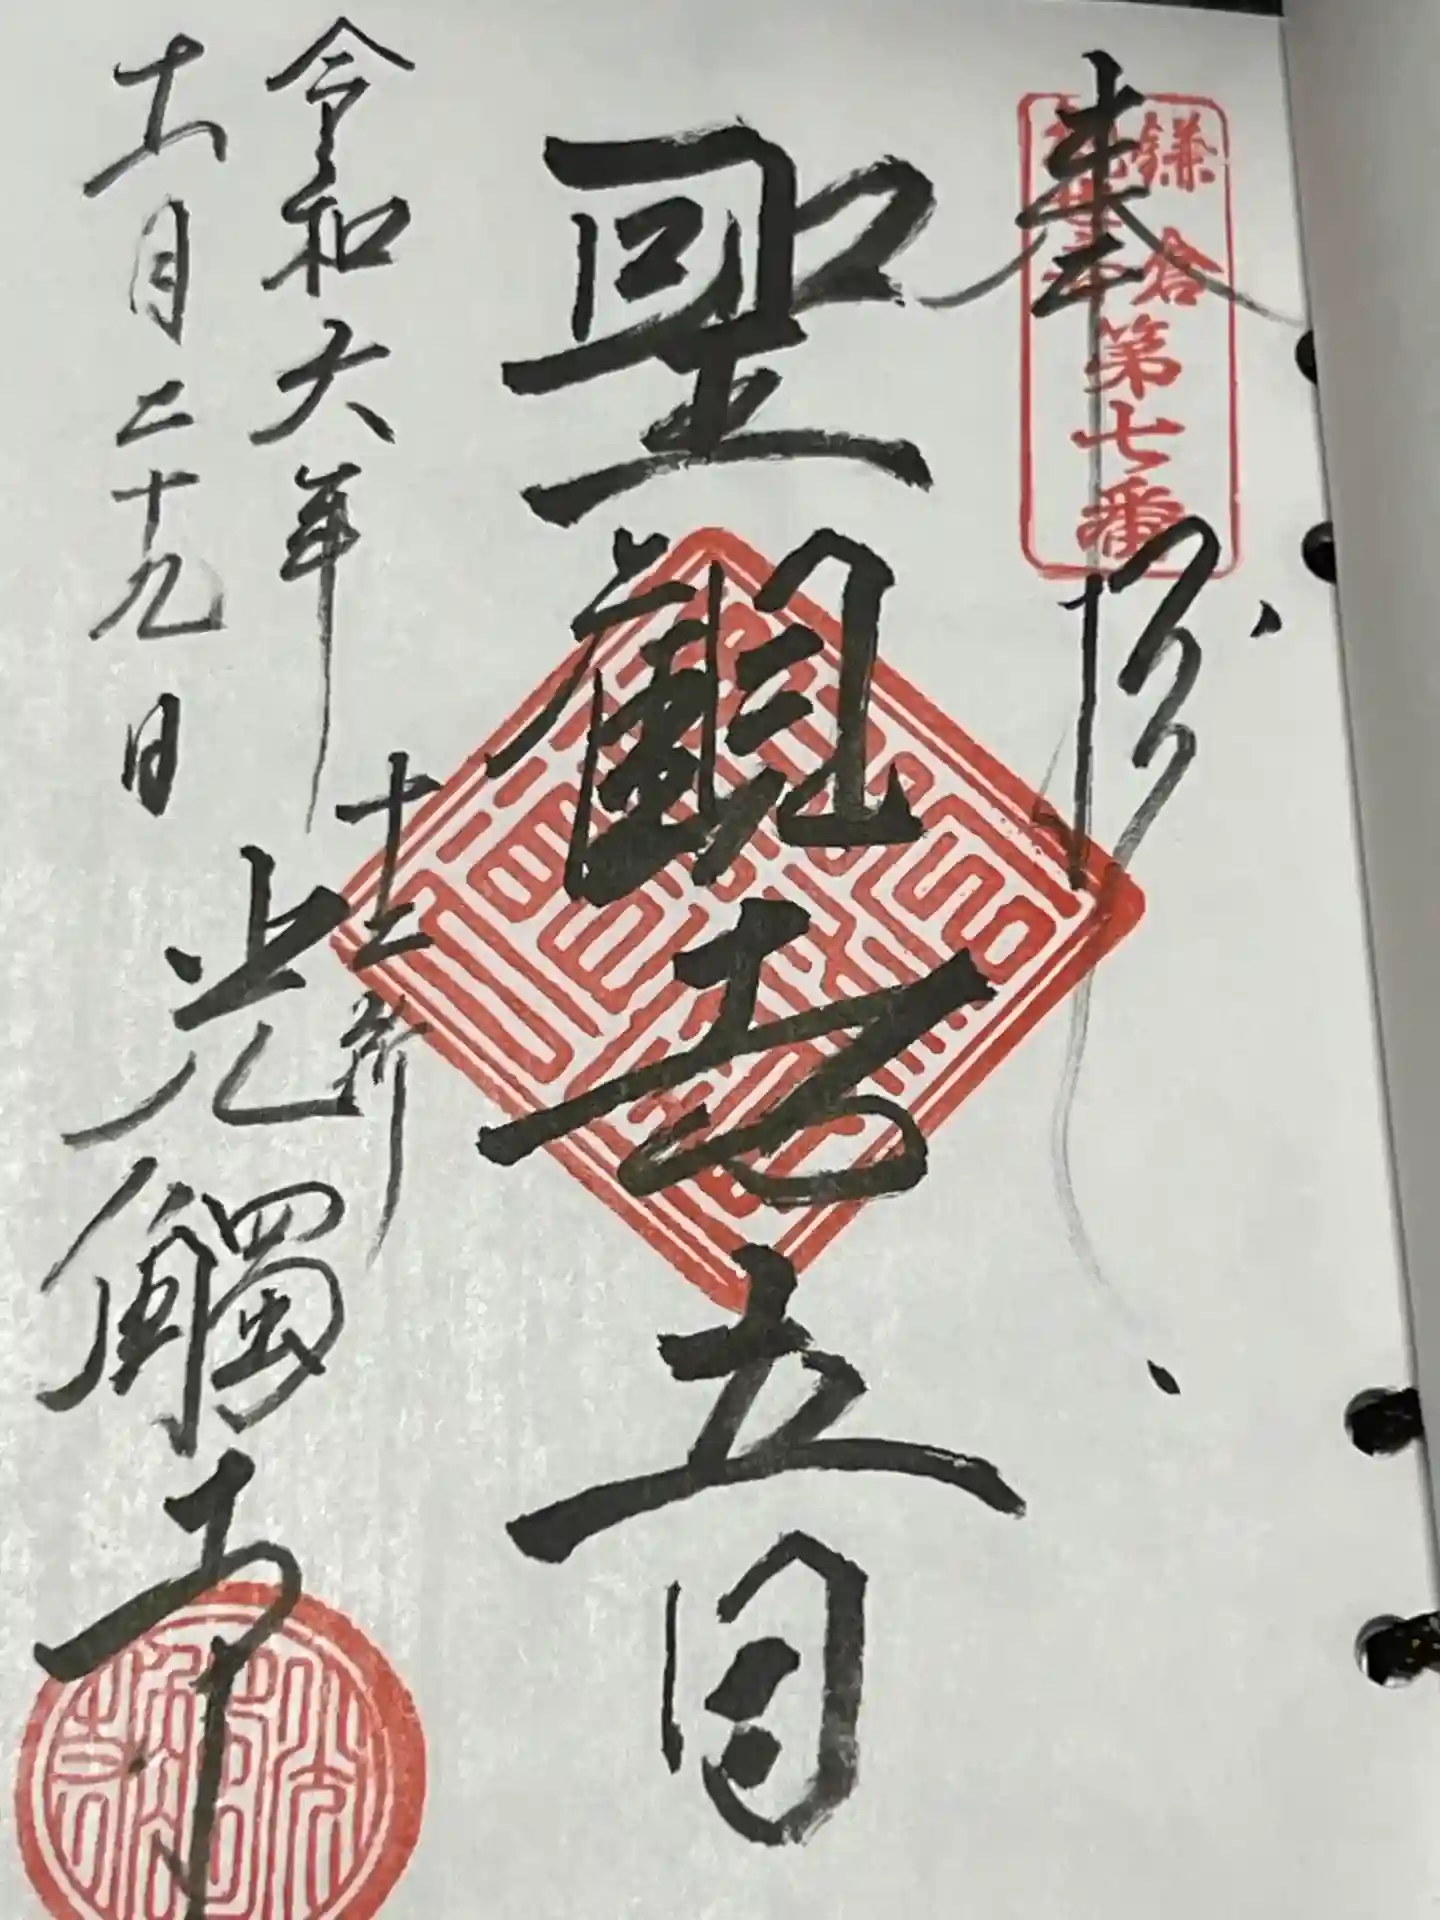 奉拝
鎌倉
第七番
聖観世音
十二所
光觸寺
令和六年
十一月二十九日